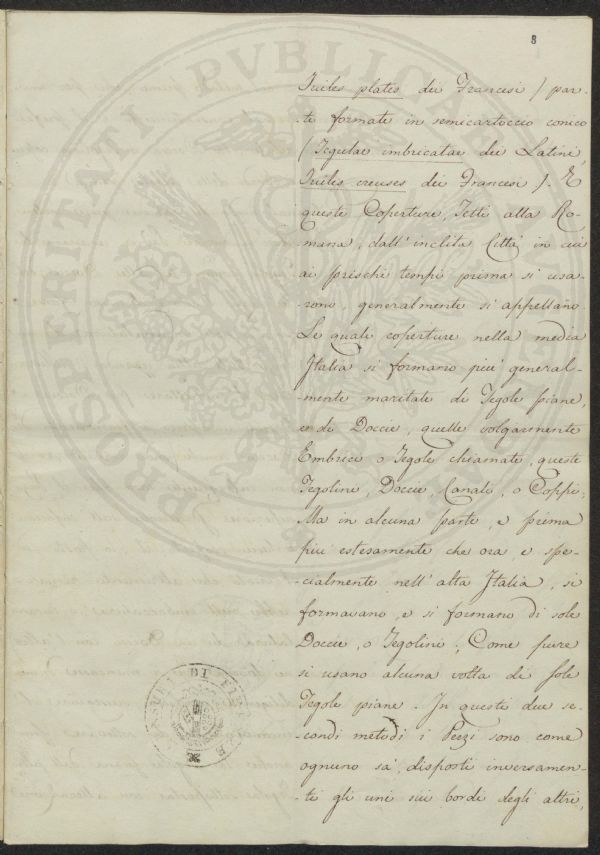 8
Tuiles plates dei Francesi / par-
-te formate in semicartoccio conico
/ Tegulae imbricatae dei Latini,
Tuiles creuses dei Francesi /. E
queste Coperture, Tetti alla Ro-
-mana, dall' inclita Città in cui
ai prischi tempi prima si usa-
-rono, generalmente si appellano.
Le quali coperture nella media
Italia si formano più general-
-mente maritate di Tegole piane,
e di Doccie, quelle volgarmente
Embrici o Tegole chiamate, queste
Tegolini, Doccie, Canali, o Coppi;
Ma in alcuna parte, e prima
più estesamente che ora, e spe-
-cialmente nell' alta Italia, si
formavano, e si formano di sole
Doccie, o Tegolini; Come pure
si usano alcuna volta di sole
Tegole piane. In questi due se-
-condi metodi i Pezzi sono come
ognuno sa, disposti inversamen-
-te gli uni sui bordi degli altri,
PROSPERITATI PVBLICAE
DI FIRENZE